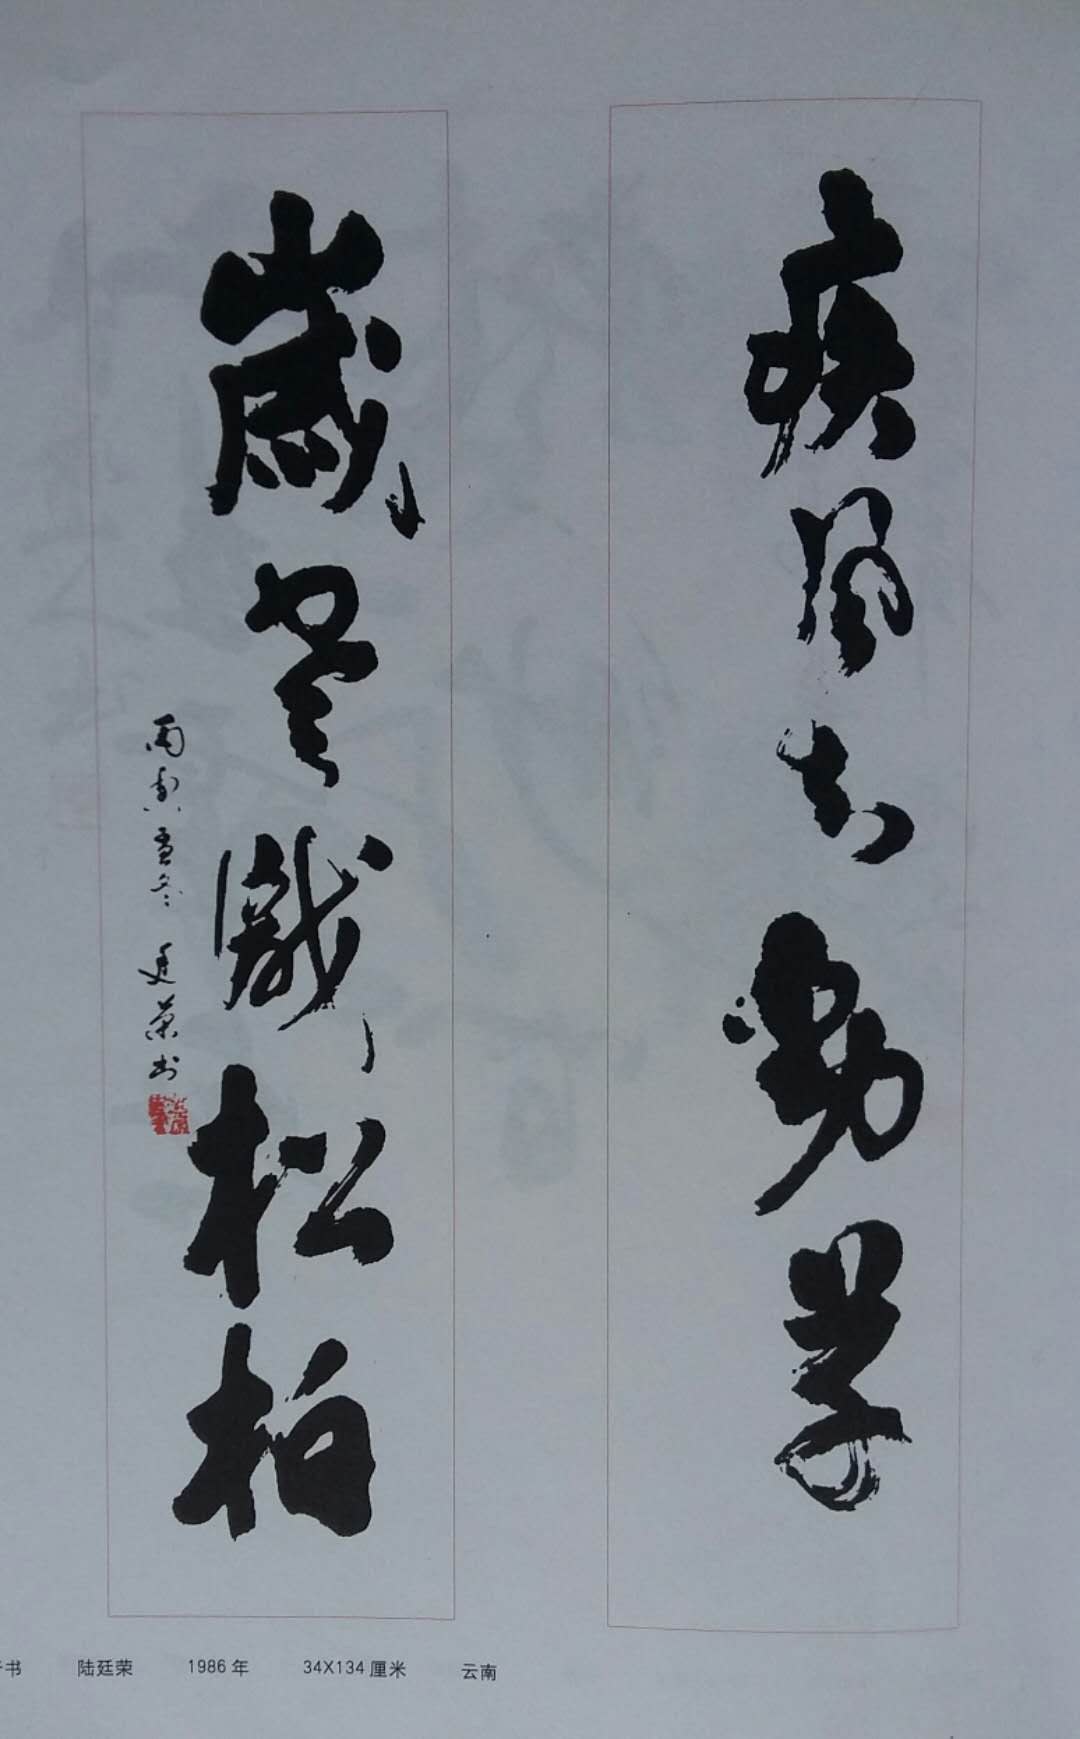 疾風知勁草
歲寒識松柏
丙寅孟冬 廷榮书
书 陆廷荣 1986年 34X134厘米 云南